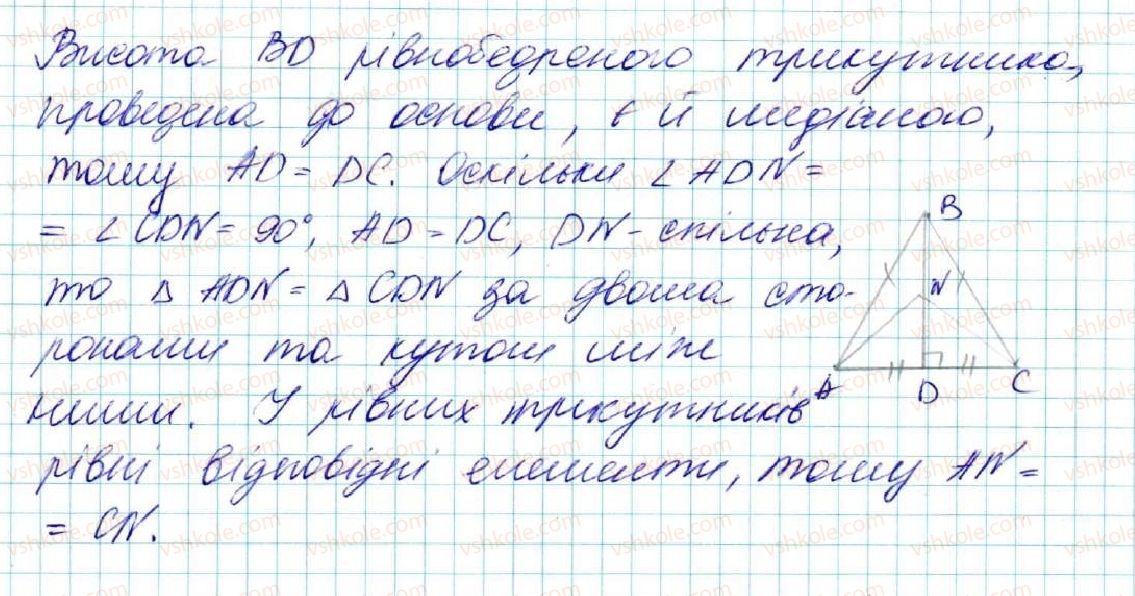 Висота BD рівнобедреного трикутника,
проведена до основи, є й медіаною,
тому AD = DC. Оскільки ∠ADN =
= ∠CDN = 90°, AD = DC, DN - спільна,
то △ ADN = △ CDN за двома сто-
ронами та кутом між
ними. У рівних трикутників
рівні відповідні елементи, тому AN =
= CN.
B
N
A
D
C
vshkole.com